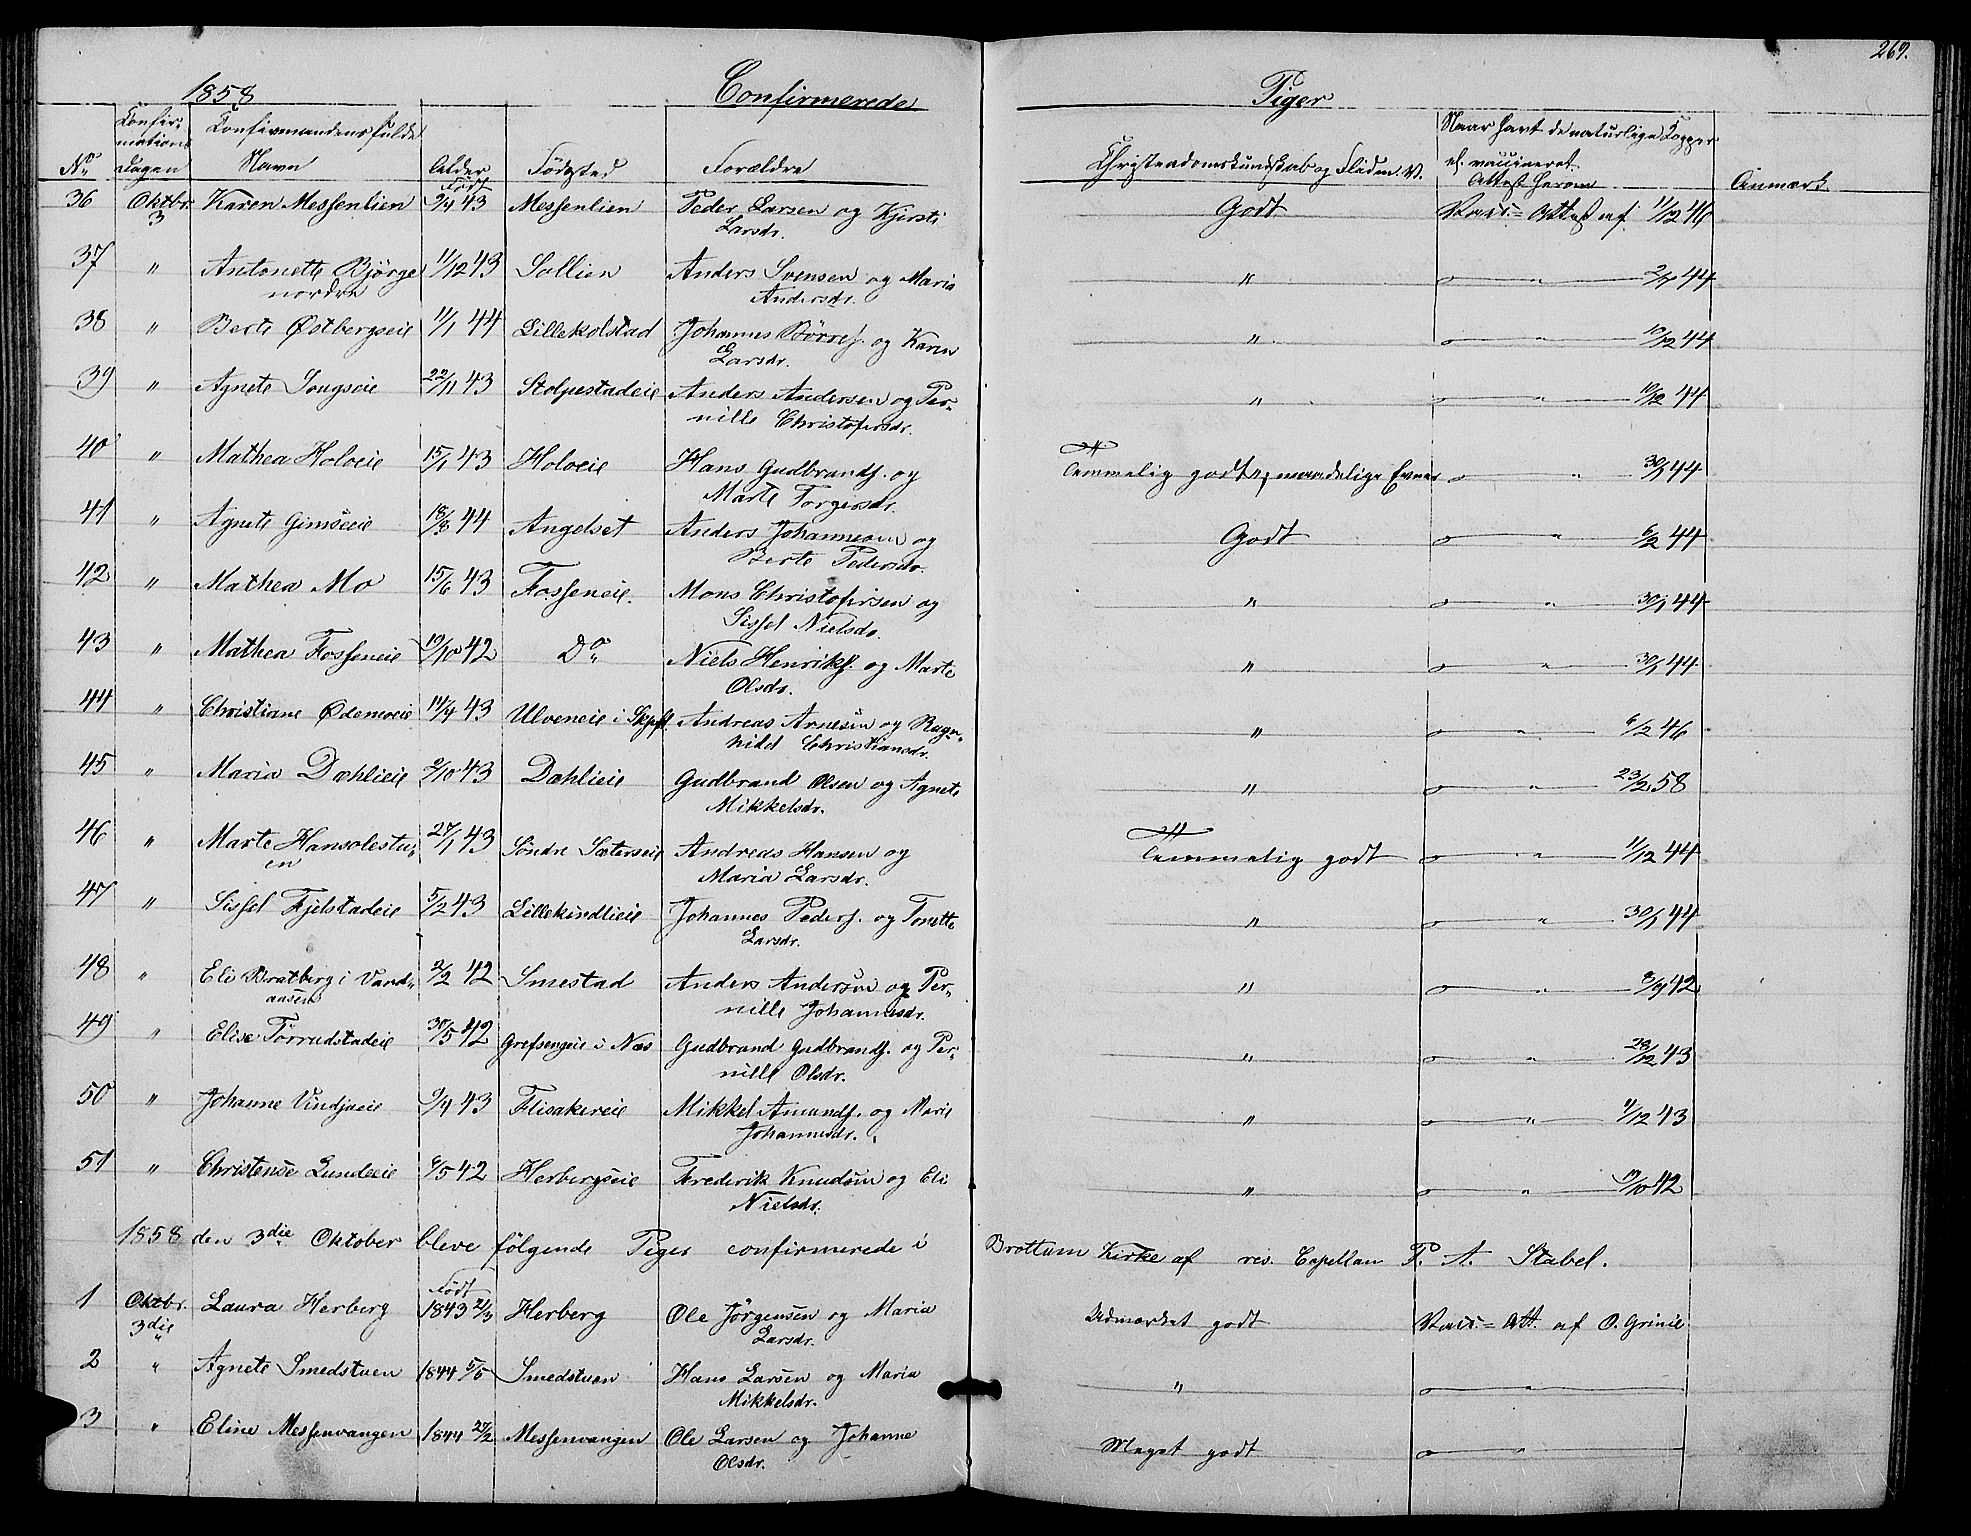 269.
1858 Confirmerede Piger
No Confirmations Dagen Confirmandens fulde Navn Alder Fødested Forældre Christendomskundskab og Fliden. V. Naar havt de naturlige Kopper el. vaccineret. Attest herom Anmærk
36 Oktbr. 3 Karen Messenlien Født 9/4 43 Messenlien Peder Larsen og Kjersti Larsdr. Godt Vacc. = Attest af 11/12 46
37 " Antonette Bjørge nordre 11/12 43 Sollien Anders Svensen og Maria Andersdr. " " 44
38 " Berte Østbergseie 11/1 44 Lillekolstad Johannes Børres. og Karen Larsdr. " " 10/12 44
39 " Agnete Sougseie 22/11 43 Stolpestadeie Anders Andersen og Pernille Christofersdr. " " 10/12 44
40 " Mathea Holoeie 15/1 43 Holoeie Hans Gudbrands. og Marte Torgersdr. Temmelig godt, maadelige Evner " 30/1 44
41 " Agnete Gimseeie 18/8 44 Angelset Anders Johannesen og Berte Pedersdr. Godt " 6/2 44
42 " Mathea Mo 15/6 43 Fosseneie. Mons Christofersen og Sissel Nielsdr. " " 30/1 44
43 " Mathea Fosseneie 19/10 42 Do Niels Henriks. og Marte Olsdr. " " 30/1 44
44 " Christiane Ødemoeie 14/4 43 Ulveneie i Andreas Arnesen og Ragnhild Christiansdr. " " 6/2 46
45 " Maria Dæhlieie 2/10 43 Dæhlieie Gudbrand Olsen og Agnete Mikkelsdr. " " 23/2 58
46 " Marte Hansolestuen 27/1 43 Søndre Sæterseie Andreas Hansen og Maria Larsdr. Temmelig godt " 11/12 44
47 " Sissel Fjelstadeie 5/2 43 Lillekindlieie Johannes Peders. og Tonette Larsdr. " " 30/1 44
48 " Eli Bratberg i Vandaasen 2/2 42 Smestad Anders Andersen og Pernille Johannesdr. " " 8/9 42
49 " Elise Tørrudstadeie 30/5 42 Grefsengeie i Næs Gudbrand Gudbrands. og Pernille Olsdr. " " 28/12 43
50 " Johanne Vindjueie 9/4 43 Flisakereie Mikkel Amunds. og Marie Johannesdr. " " 4/12 43
51 " Christense Lundeeie 8/5 42 Herbergseie Frederik Knudsen og Eli Nielsdr. " " 19/10 42
1858 den 3die Oktober bleve følgende Piger confirmerede i Brottum Kirke af res. Capellan P. A. Stabel.
1 Oktbr. 3die Laura Herberg Født 1843 2/3 Herberg Ole Jørgensen og Maria Larsdr. Udmærket godt Vacc. = Att. af O. Grinie
2 " Agnete Smedstuen 1844 5/5 Smedstuen Hans Larsen og Maria Mikkelsdr. " "
3 " Eline Messenvangen 1844 27/2 Messenvangen Ole Larsen og Johanne Olsdr. Meget godt "